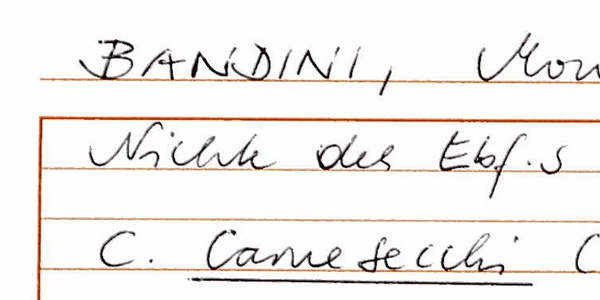 BANDINI, Mon
Nichte des Ebf.s
C. Carnesecchi C